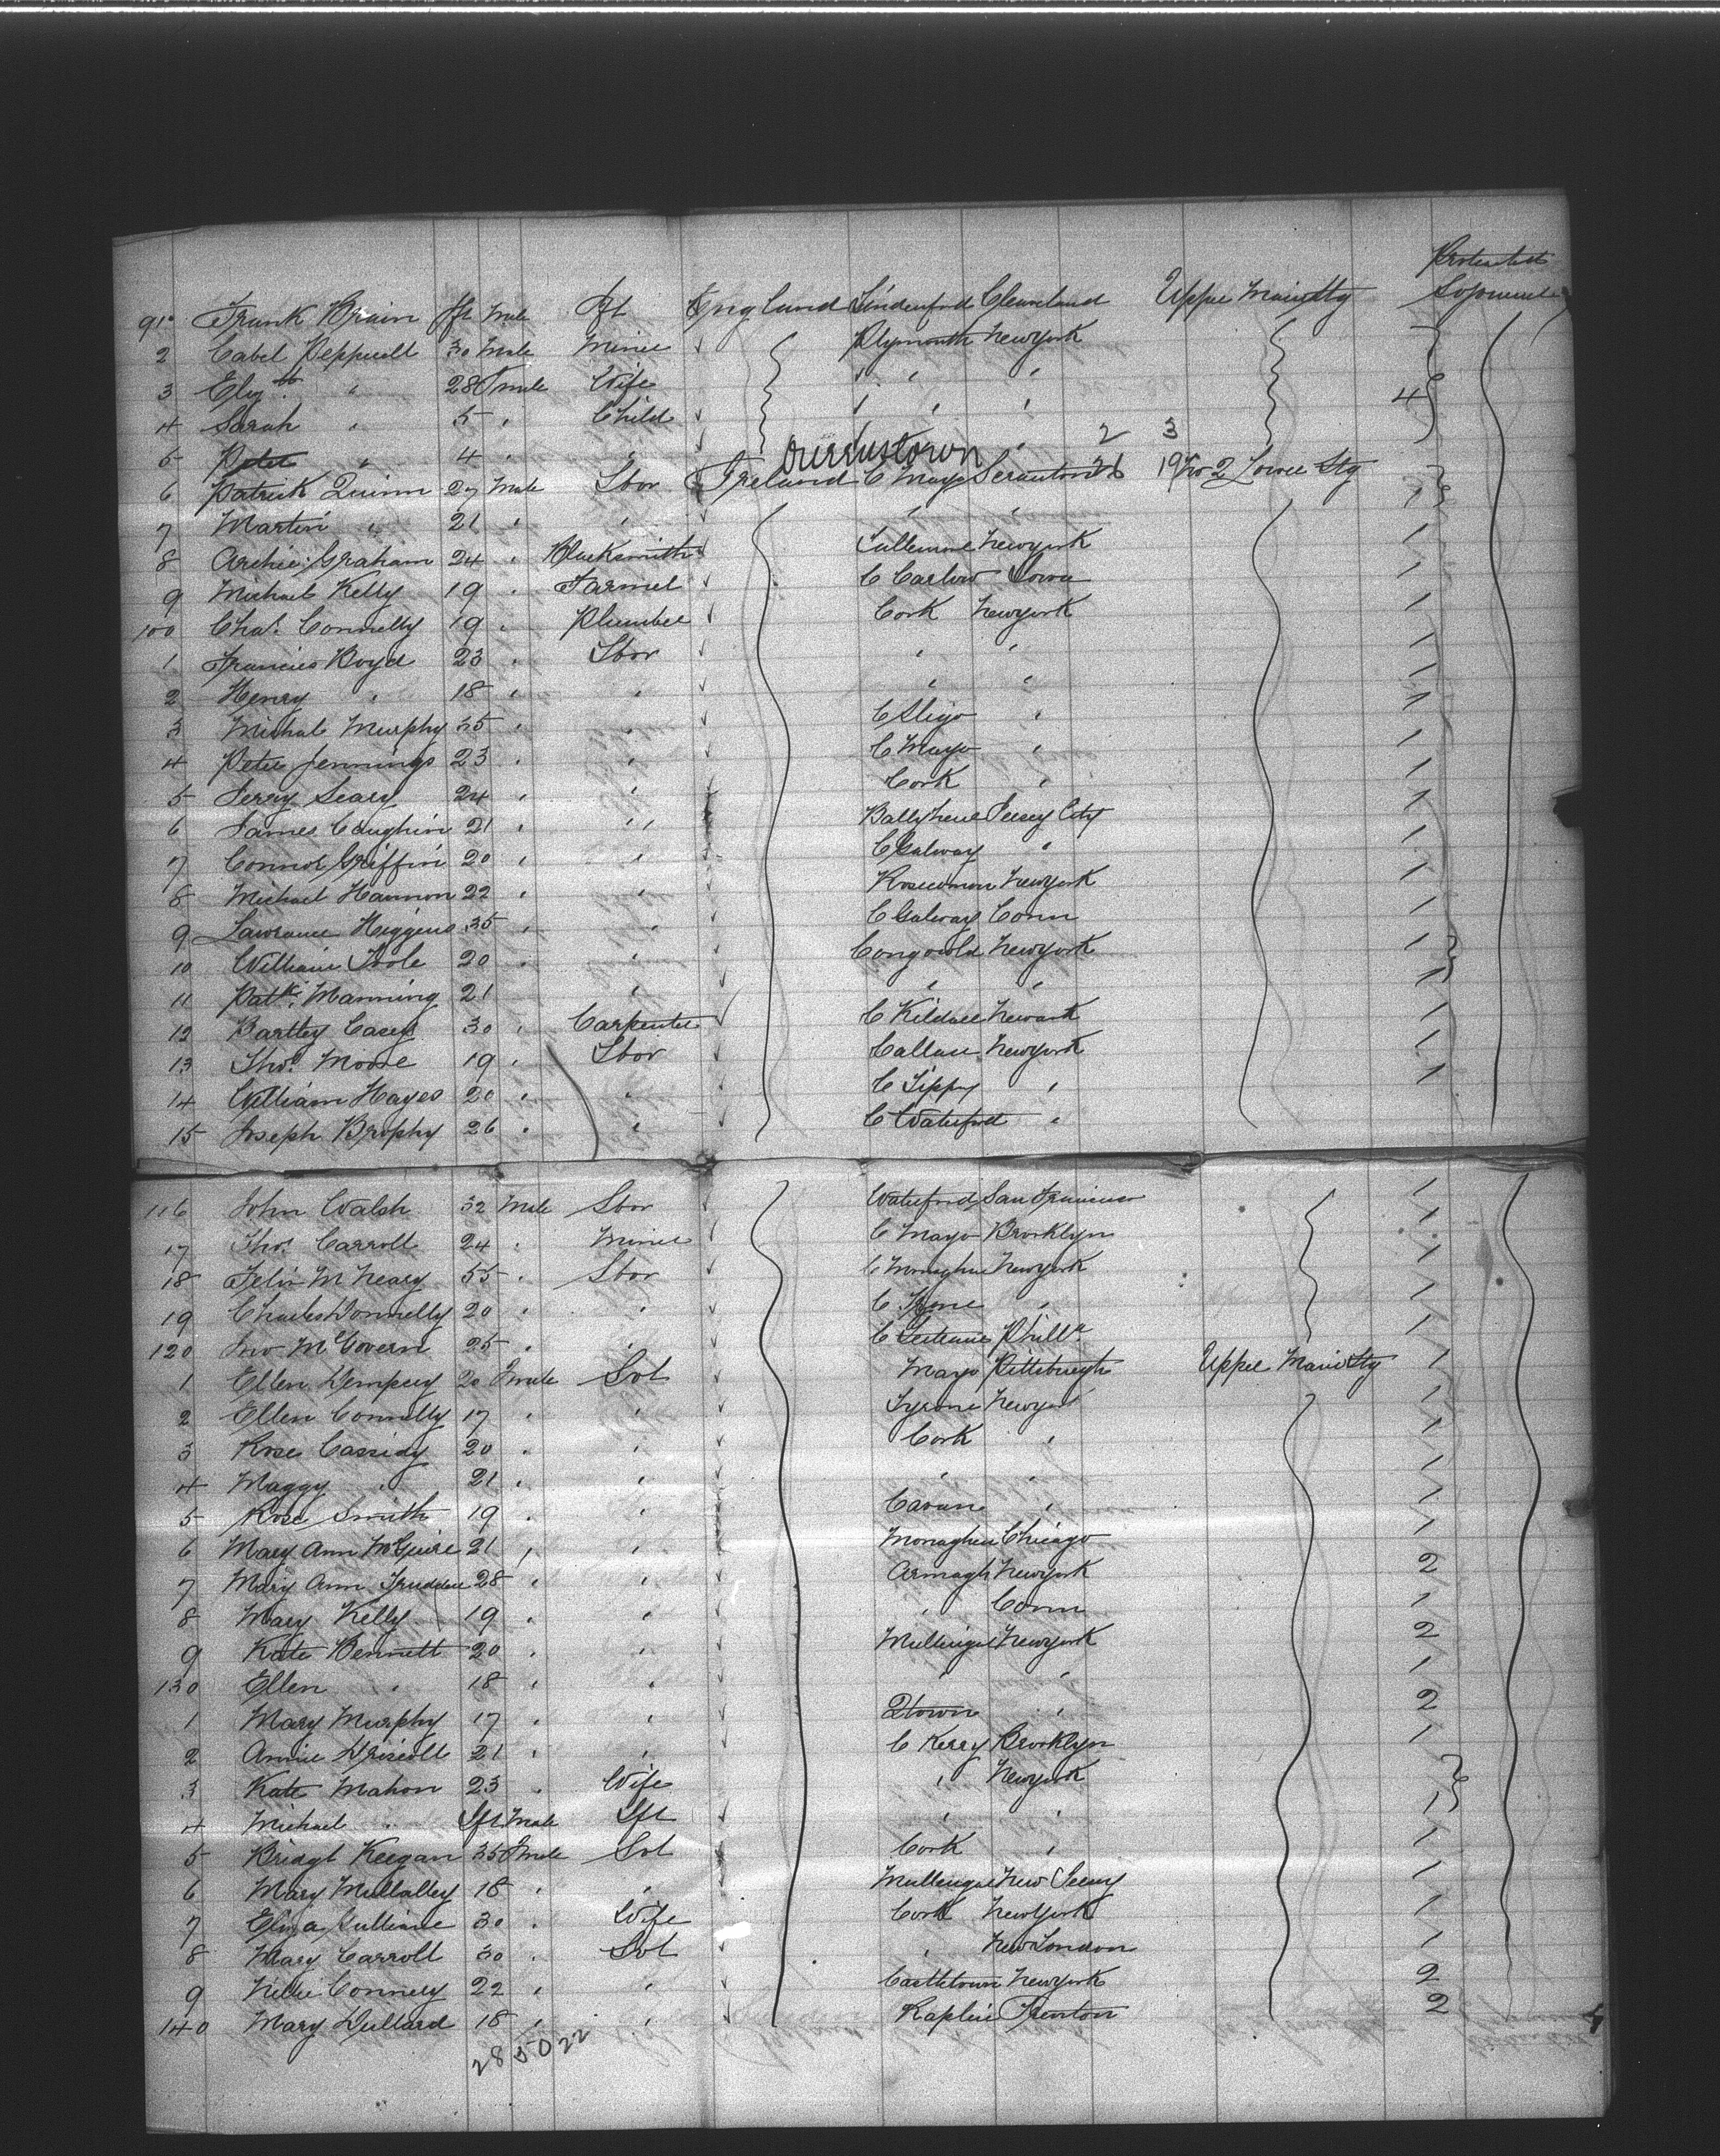 Protracted
91 Frank Brain Ift Male Ift England Cleveland Upper Main Stg Sojourn
2 30 Male Miner Plymouth New York
3 Elizth " 28 Fmale Wife " " "
4 Sarah " 5 " Child " " " 4
5 Peter " 4 " " " 2 3
Queenstown
6 Patrick Quinn 27 Male Lbor Ireland C Mayo Scranton 19 No 2 Lower Stg
7 Martin " 21 " " " " 1
8 Archie Graham 24 " Blacksmith New York 1
9 Michael Kelly 19 " Farmer C Carlow Iowa 1
100 Chas. Connelly 19 " Plumber Cork New York 1
1 Francis Boyd 23 " Lbor " " 1
2 Henry " 18 " " " " 1
3 Michal Murphy 35 " " C Sligo " 1
4 Peter Jennings 23 " " C Mayo " 1
5 Jerry Leary 24 " " Cork " 1
6 James Coughlin 21 " " Jersey City 1
7 Connor Griffin 20 " " C Galway " 1
8 Michael Hannon 22 " " New York 1
9 Lawrance Higgins 35 " " C Galway Conn 1
10 William Toole 20 " " New York 1
11 Patk. Manning 21 " " " 1
12 Bartley Casey 30 " Carpenter C Kildare Newark 1
13 Thos. Moore 19 " Lbor Callan New York 1
14 William Hayes 20 " " C Tippy " 1
15 Joseph Brophy 26 " " C Waterford "
116 John Walsh 32 Male Lbor Waterford San Francisco 1
17 Thos. Carroll 24 " Miner C Mayo Brooklyn 1
18 Felix McNeary 55 " Lbor C Monaghan New York 1
19 Charles Donnelly 20 " " C Tyrone " 1
120 Jno McGovern 25 " " C Leitrim Philla 1
1 Ellen Dempsey 20 Fmale Svt Mayo Pittsburgh Upper Main Stg 1
2 Ellen Connelly 17 " " Tyrone New York 1
3 Rose Cassidy 20 " " Cork " 1
4 Maggy " 21 " " " " 1
5 Rose Smith 19 " " Cavan " 1
6 Mary Ann McGuire 21 " " Monaghan Chicago 1
7 Mary Ann 28 " " Armagh New York 2
8 Mary Kelly 19 " " " Conn 1
9 Kate Bennett 20 " " Mullingar New York 2
130 Ellen " 18 " " " " 1
1 Mary Murphy 17 " " Qtown " 2
2 Annie Driscoll 21 " " C Kerry Brooklyn 1
3 Kate Mahon 23 " Wife " New York
4 Michael " Ift Male Ift " " 1
5 Bridgt Keegan 35 Fmale Svt Cork " 1
6 Mary Mullalley 18 " " Mullingar New Jersey 1
7 Eliza Sullivan 30 " Wife Cork New York 1
8 Mary Carroll 30 " Svt " New London 1
9 Nellie Connely 22 " " Castletown New York 2
140 Mary Dullard 18 " " Trenton 2
28 50 22